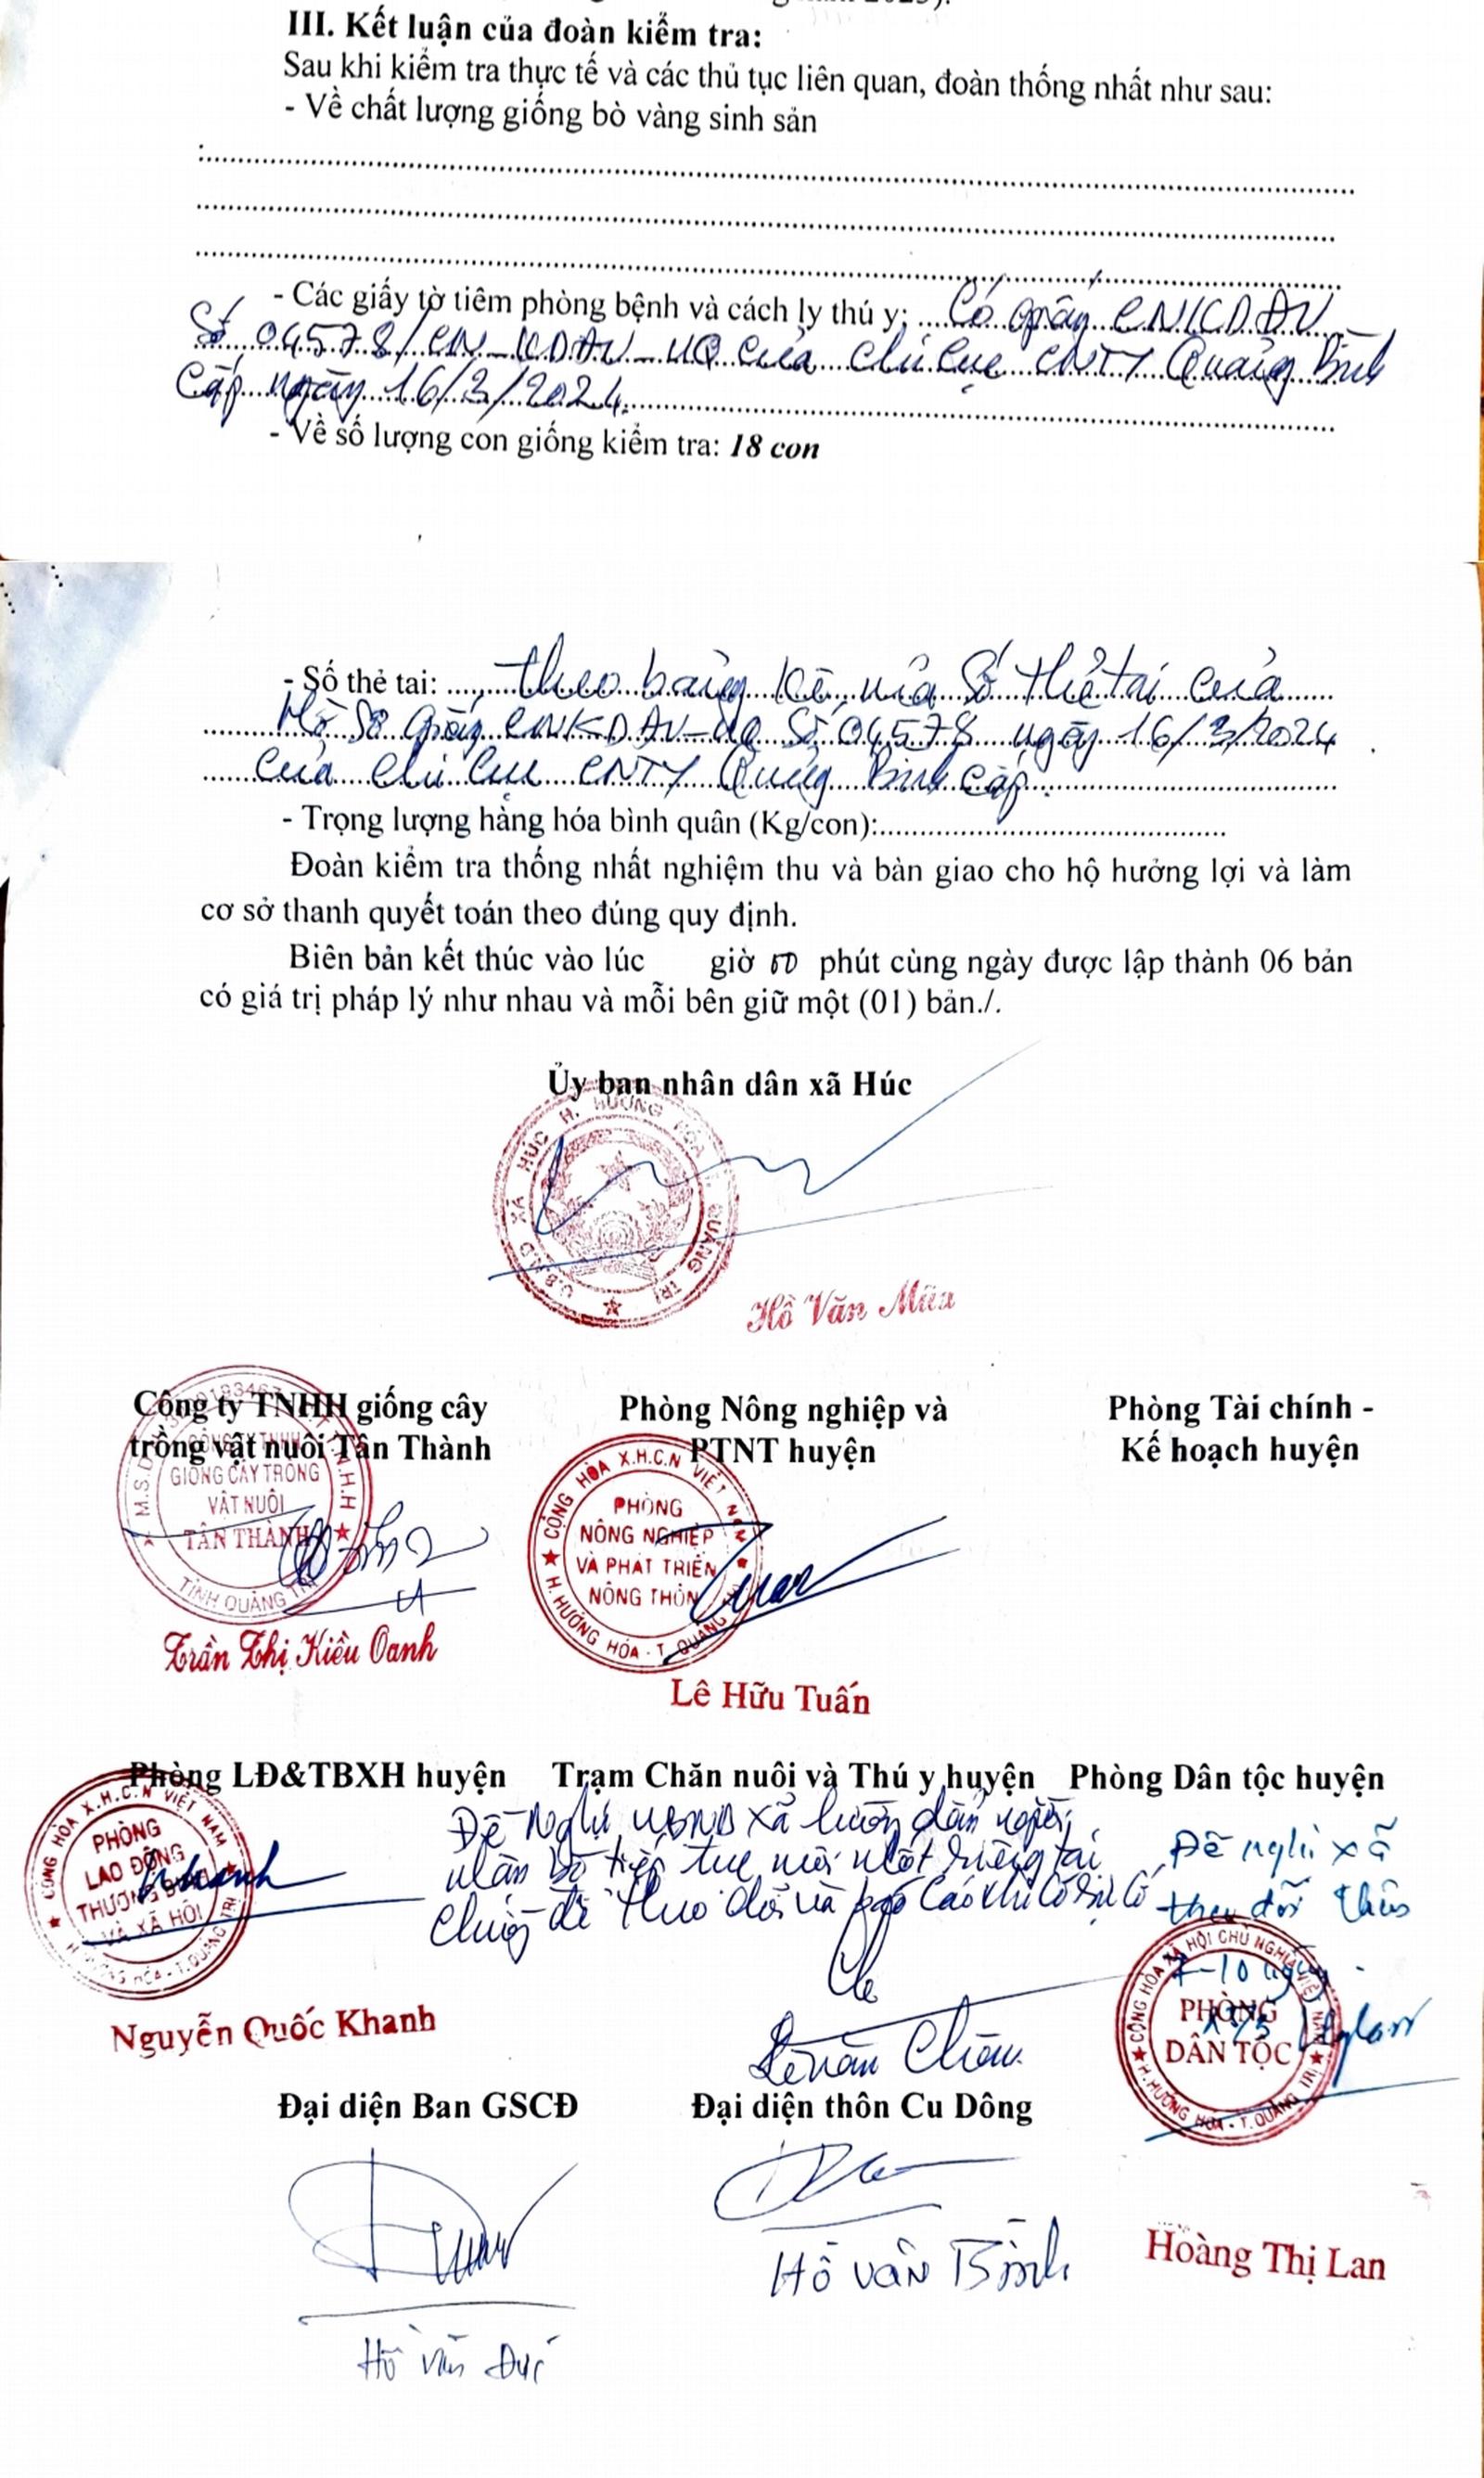 III. Kết luận của đoàn kiểm tra:
Sau khi kiểm tra thực tế và các thủ tục liên quan, đoàn thống nhất như sau:
- Về chất lượng giống bò vàng sinh sản
:
- Các giấy tờ tiêm phòng bệnh và cách ly thú y: Có giấy CNKDĐV
Số 04578/CN-KDĐV-UQ của chi cục CNTY Quảng Bình
Cấp ngày 16/3/2024.
- Về số lượng con giống kiểm tra: 18 con
- Số thẻ tai: theo bảng kê, mã số thẻ tai của
Hồ Sơ giấy CNKDĐV-UQ Số 04578 ngày 16/3/2024
của chi cục CNTY Quảng Bình cấp.
- Trọng lượng hàng hóa bình quân (Kg/con):
Đoàn kiểm tra thống nhất nghiệm thu và bàn giao cho hộ hưởng lợi và làm
cơ sở thanh quyết toán theo đúng quy định.
Biên bản kết thúc vào lúc giờ 50 phút cùng ngày được lập thành 06 bản
có giá trị pháp lý như nhau và mỗi bên giữ một (01) bản./.
Ủy ban nhân dân xã Húc
U.B.N.D XÃ HÚC H. HƯỚNG HÓA T. QUẢNG TRỊ
Hồ Văn Mừu
Công ty TNHH giống cây
trồng vật nuôi Tân Thành
Phòng Nông nghiệp và
PTNT huyện
Phòng Tài chính -
Kế hoạch huyện
CÔNG TY TNHH
GIỐNG CÂY TRỒNG
VẬT NUÔI
TÂN THÀNH
TỈNH QUẢNG TRỊ
Trần Thị Kiều Oanh
CỘNG HÒA X.H.C.N VIỆT NAM
PHÒNG
NÔNG NGHIỆP
VÀ PHÁT TRIỂN
NÔNG THÔN
H. HƯỚNG HÓA - T. QUẢNG TRỊ
Lê Hữu Tuấn
Phòng LĐ&TBXH huyện
Trạm Chăn nuôi và Thú y huyện
Phòng Dân tộc huyện
CỘNG HÒA X.H.C.N VIỆT NAM
PHÒNG
LAO ĐỘNG
THƯƠNG BINH
VÀ XÃ HỘI
H. HƯỚNG HÓA - T. QUẢNG TRỊ
Nguyễn Quốc Khanh
Đề Nghị UBND xã hướng dẫn người
nhận bò tiếp tục nuôi nhốt riêng tại
chuồng để theo dõi và báo cáo khi có sự cố
Đề nghị xã
theo dõi thêm
7-10 ngày
CỘNG HÒA XÃ HỘI CHỦ NGHĨA VIỆT NAM
PHÒNG
DÂN TỘC
H. HƯỚNG HÓA - T. QUẢNG TRỊ
Đại diện Ban GSCĐ
Đại diện thôn Cu Dông
Hồ Văn Bình
Hoàng Thị Lan
Hồ Văn Đức